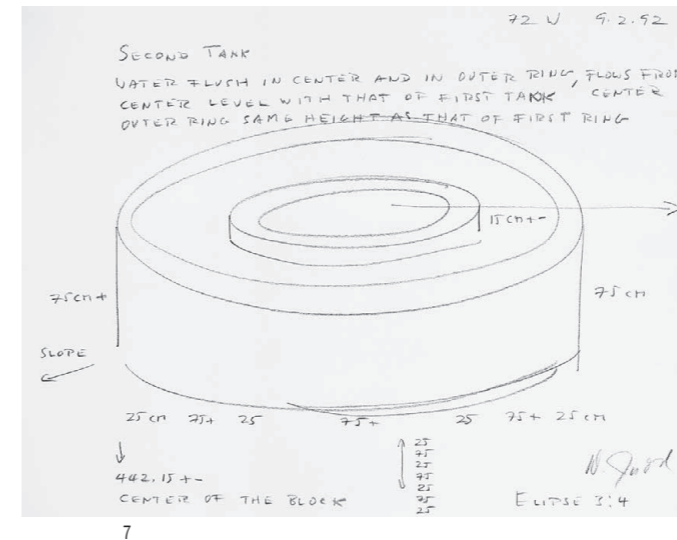 72 W 9.2.92
SECOND TANK
WATER FLUSH IN CENTER AND IN OUTER RING, FLOWS FROM CENTER
CENTER LEVEL WITH THAT OF FIRST TANK
OUTER RING SAME HEIGHT AS THAT OF FIRST RING
15 CM+-
75 CM+
75 CM
SLOPE
25 CM 75+ 25 75+ 25 75+ 25 CM
25
75
25
75
25
75
25
442.15+-
CENTER OF THE BLOCK
Judd
ELIPSE 3:4
7